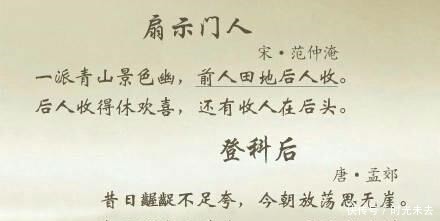 扇示门人
宋·范仲淹
一派青山景色幽，前人田地后人收。
后人收得休欢喜，还有收人在后头。
登科后
唐·孟郊
昔日龌龊不足夸，今朝放荡思无崖。
快传号/时光未去